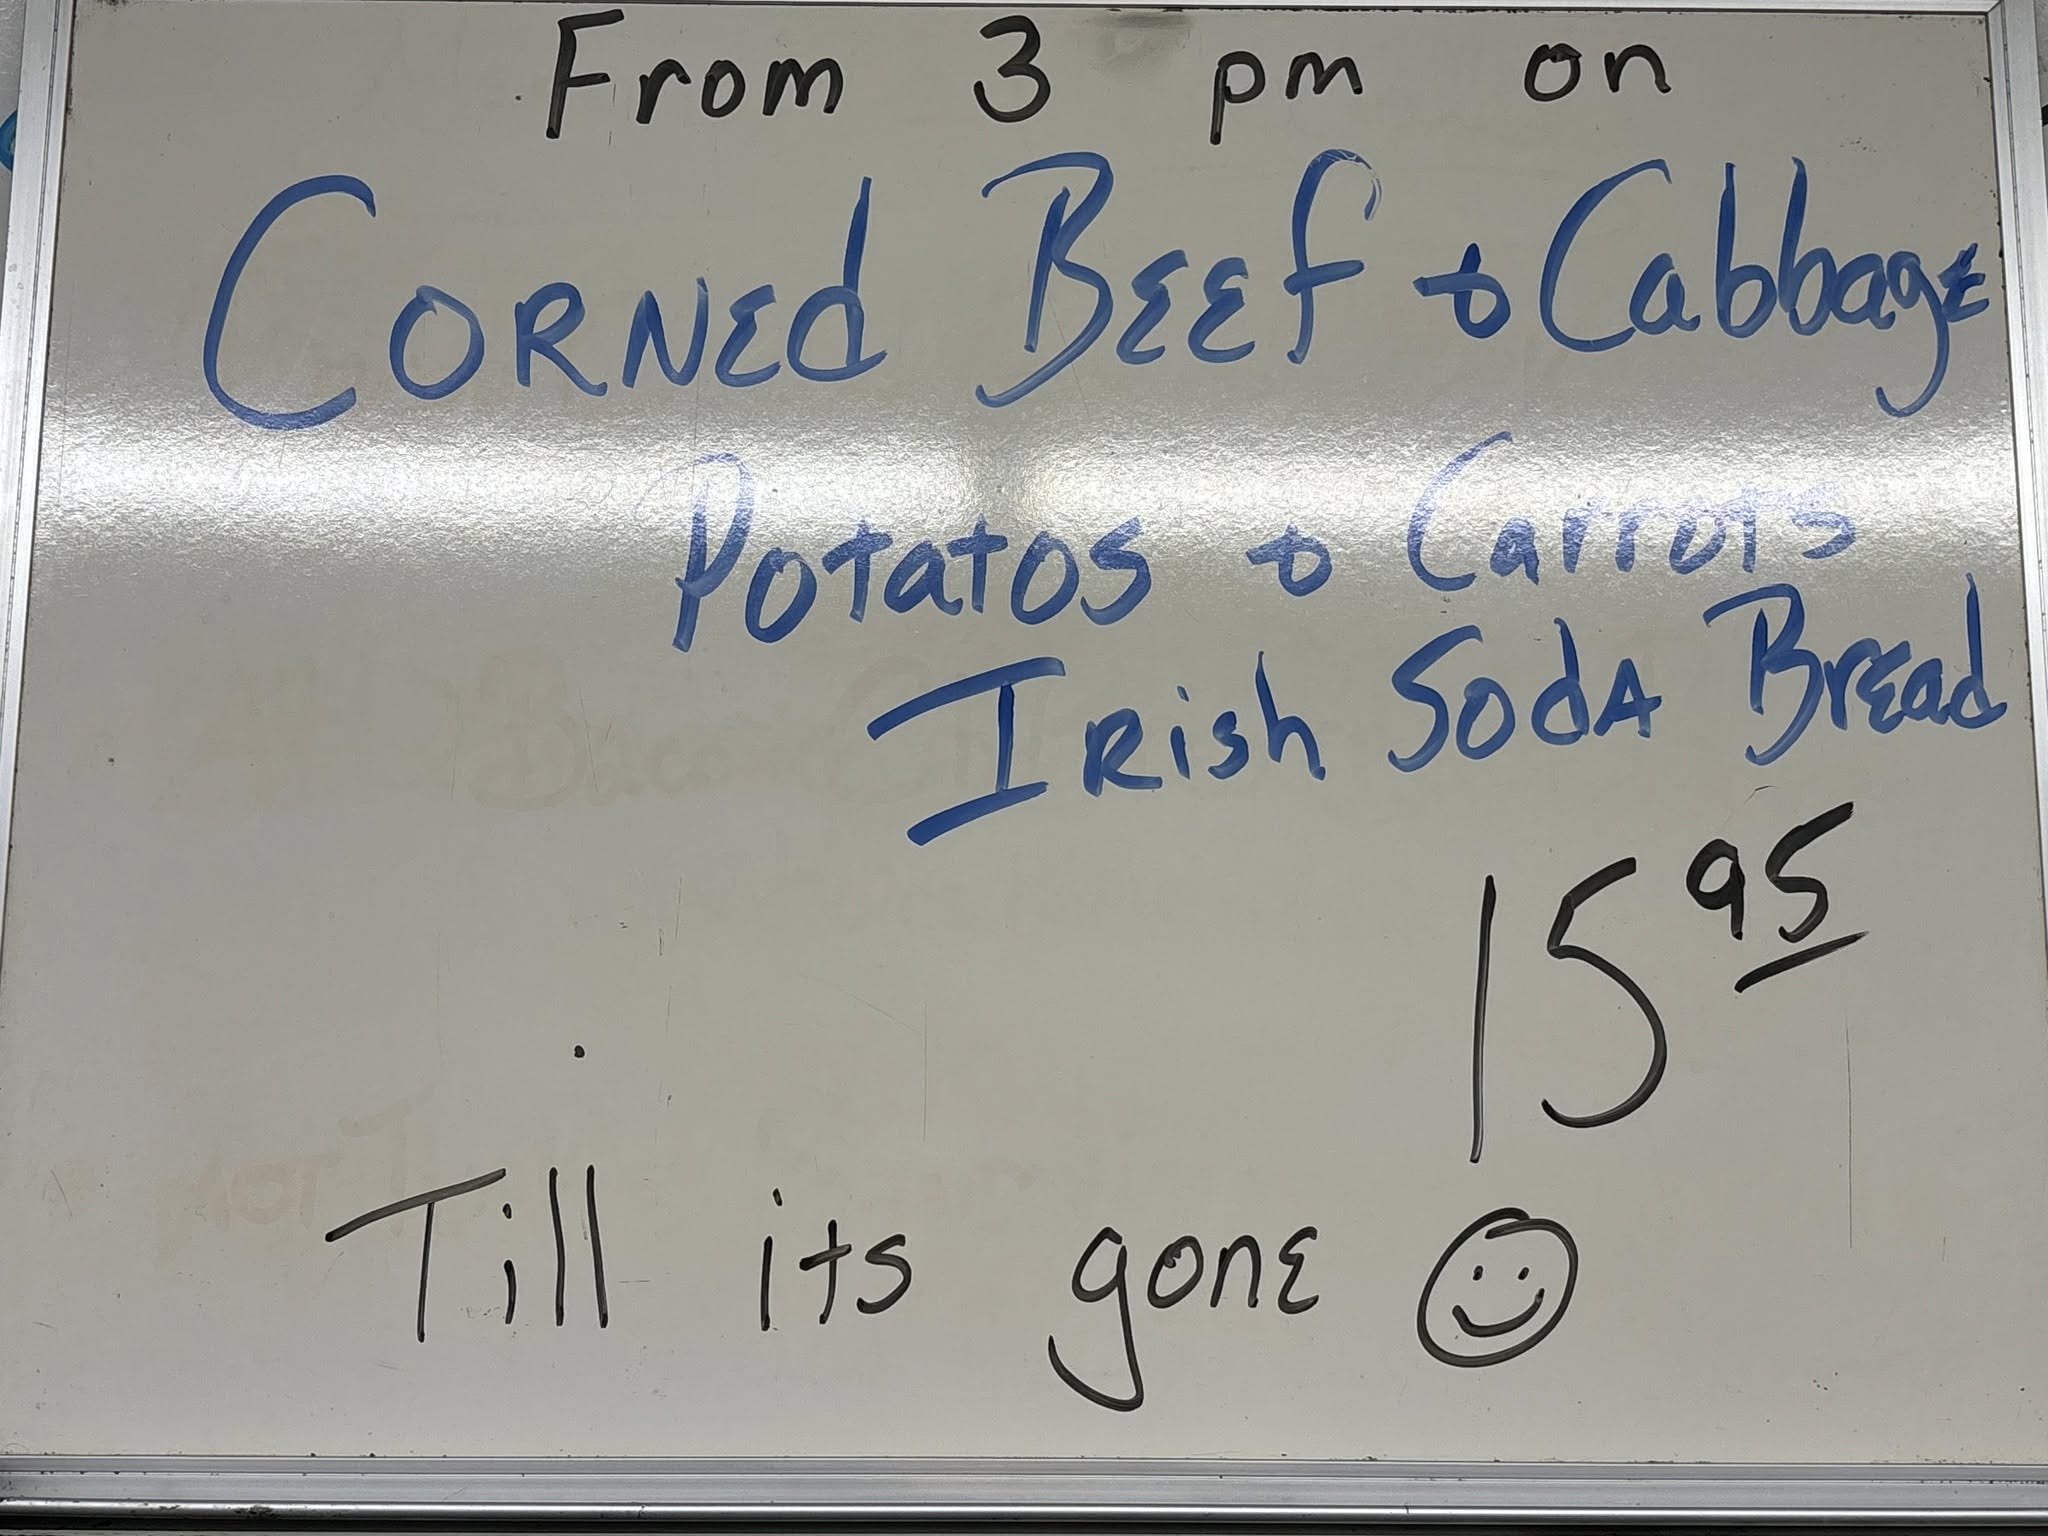 From 3 pm on
Corned Beef & Cabbage
Potatos & Carrots
Irish Soda Bread
15 95
Till its gone